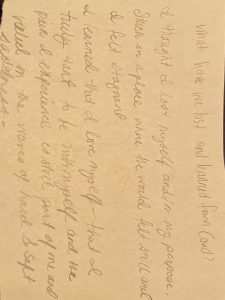 What have we lost and learned from Covid?
I thought I lost myself and in my purpose.
Stuck in a place where the world felt still and
I felt stagnant.
I learned that I love myself – that I
truly want to be with myself and the
pain I experience is still part of me and
valid in the waves of hard & soft
sadness –